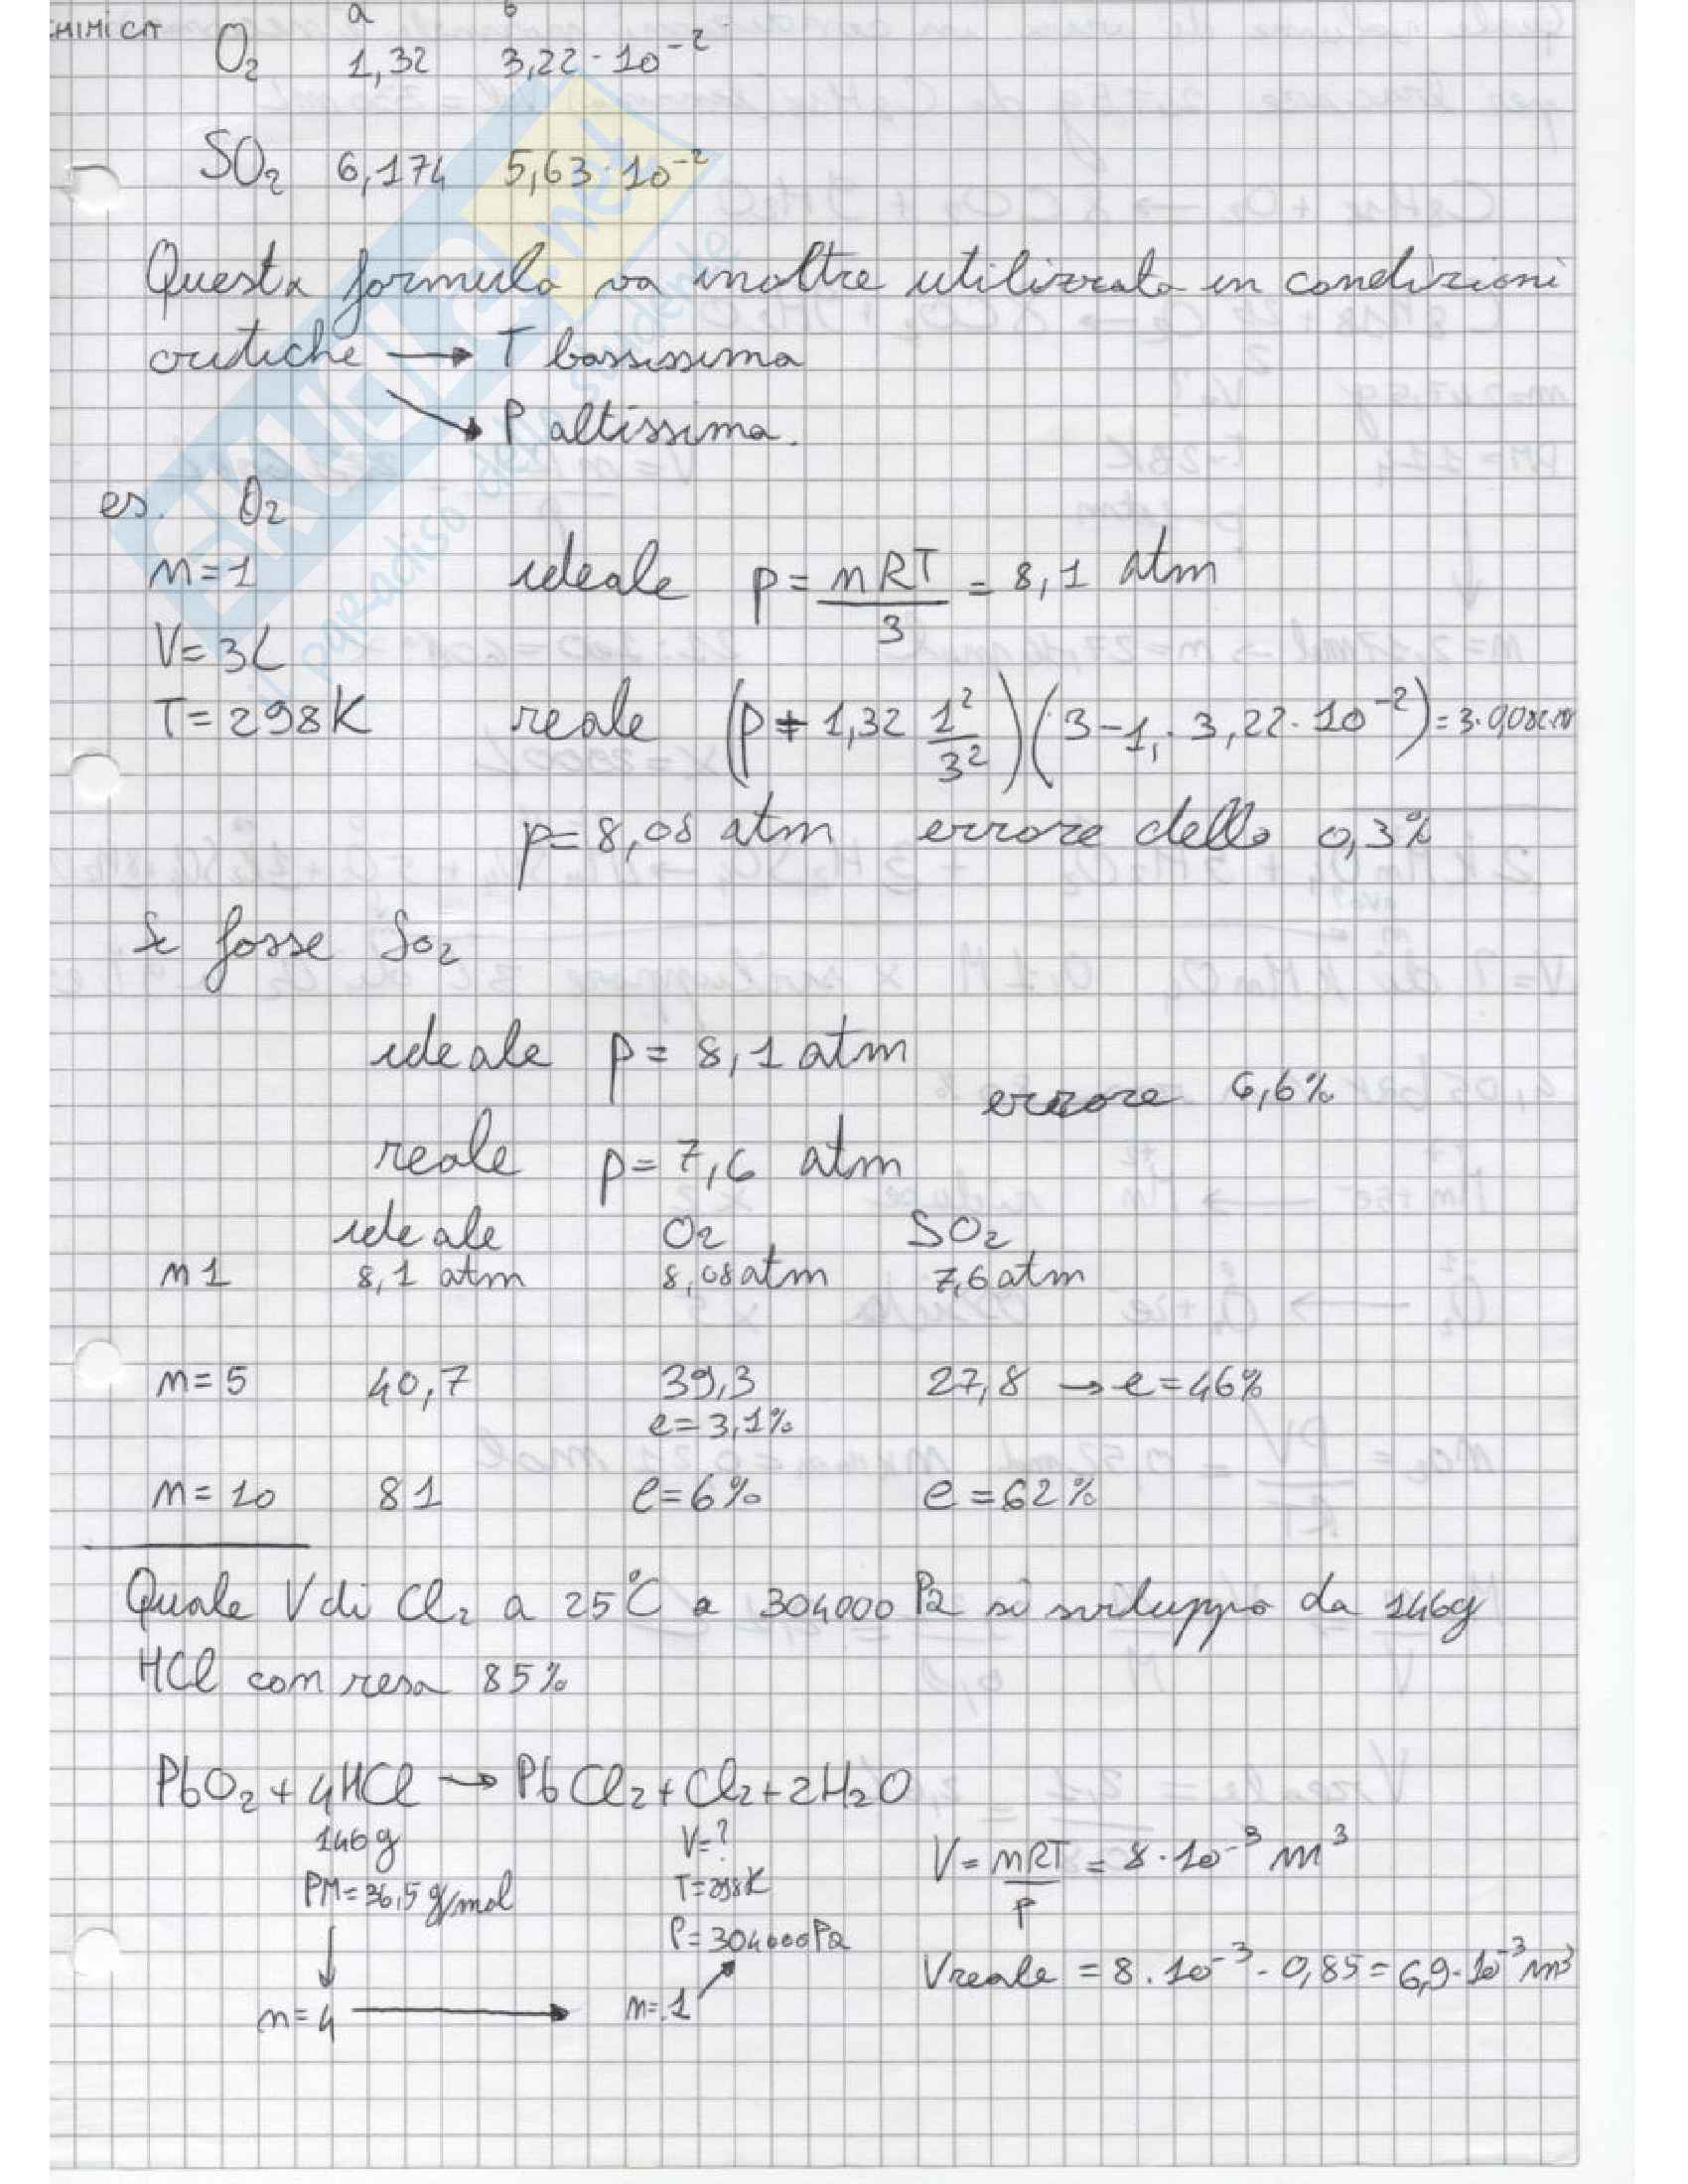 CHIMICA
a b
O₂ 1,32 3,22·10⁻²
SO₂ 6,174 5,63·10⁻²
Questa formula va inoltre utilizzata in condizioni
critiche → T bassissima
→ P altissima.
es. O₂
n=1 ideale p = nRT/3 = 8,1 atm
V=3L
T=298K reale (p + 1,32 1²/3²)(3-1·3,22·10⁻²) =
p=8,08 atm errore dello 0,3%
Se fosse SO₂
ideale p= 8,1 atm
errore 6,6%
reale p= 7,6 atm
ideale O₂ SO₂
n 1 8,1 atm 8,08 atm 7,6 atm
n=5 40,7 39,3 27,8 → e=46%
e=3,1%
n=10 81 e=6% e=62%
Quale V di Cl₂ a 25°C a 304000 Pa si sviluppa da 146g
HCl con resa 85%
PbO₂ + 4HCl → PbCl₂ + Cl₂ + 2H₂O
146g V=?
PM=36,5 g/mol T=298K
V = nRT/P = 8·10⁻³ m³
P=304000Pa
Vreale = 8·10⁻³·0,85 = 6,9·10⁻³ m³
n=4 → n=1
SKUOLA.net
il paradiso dello studente